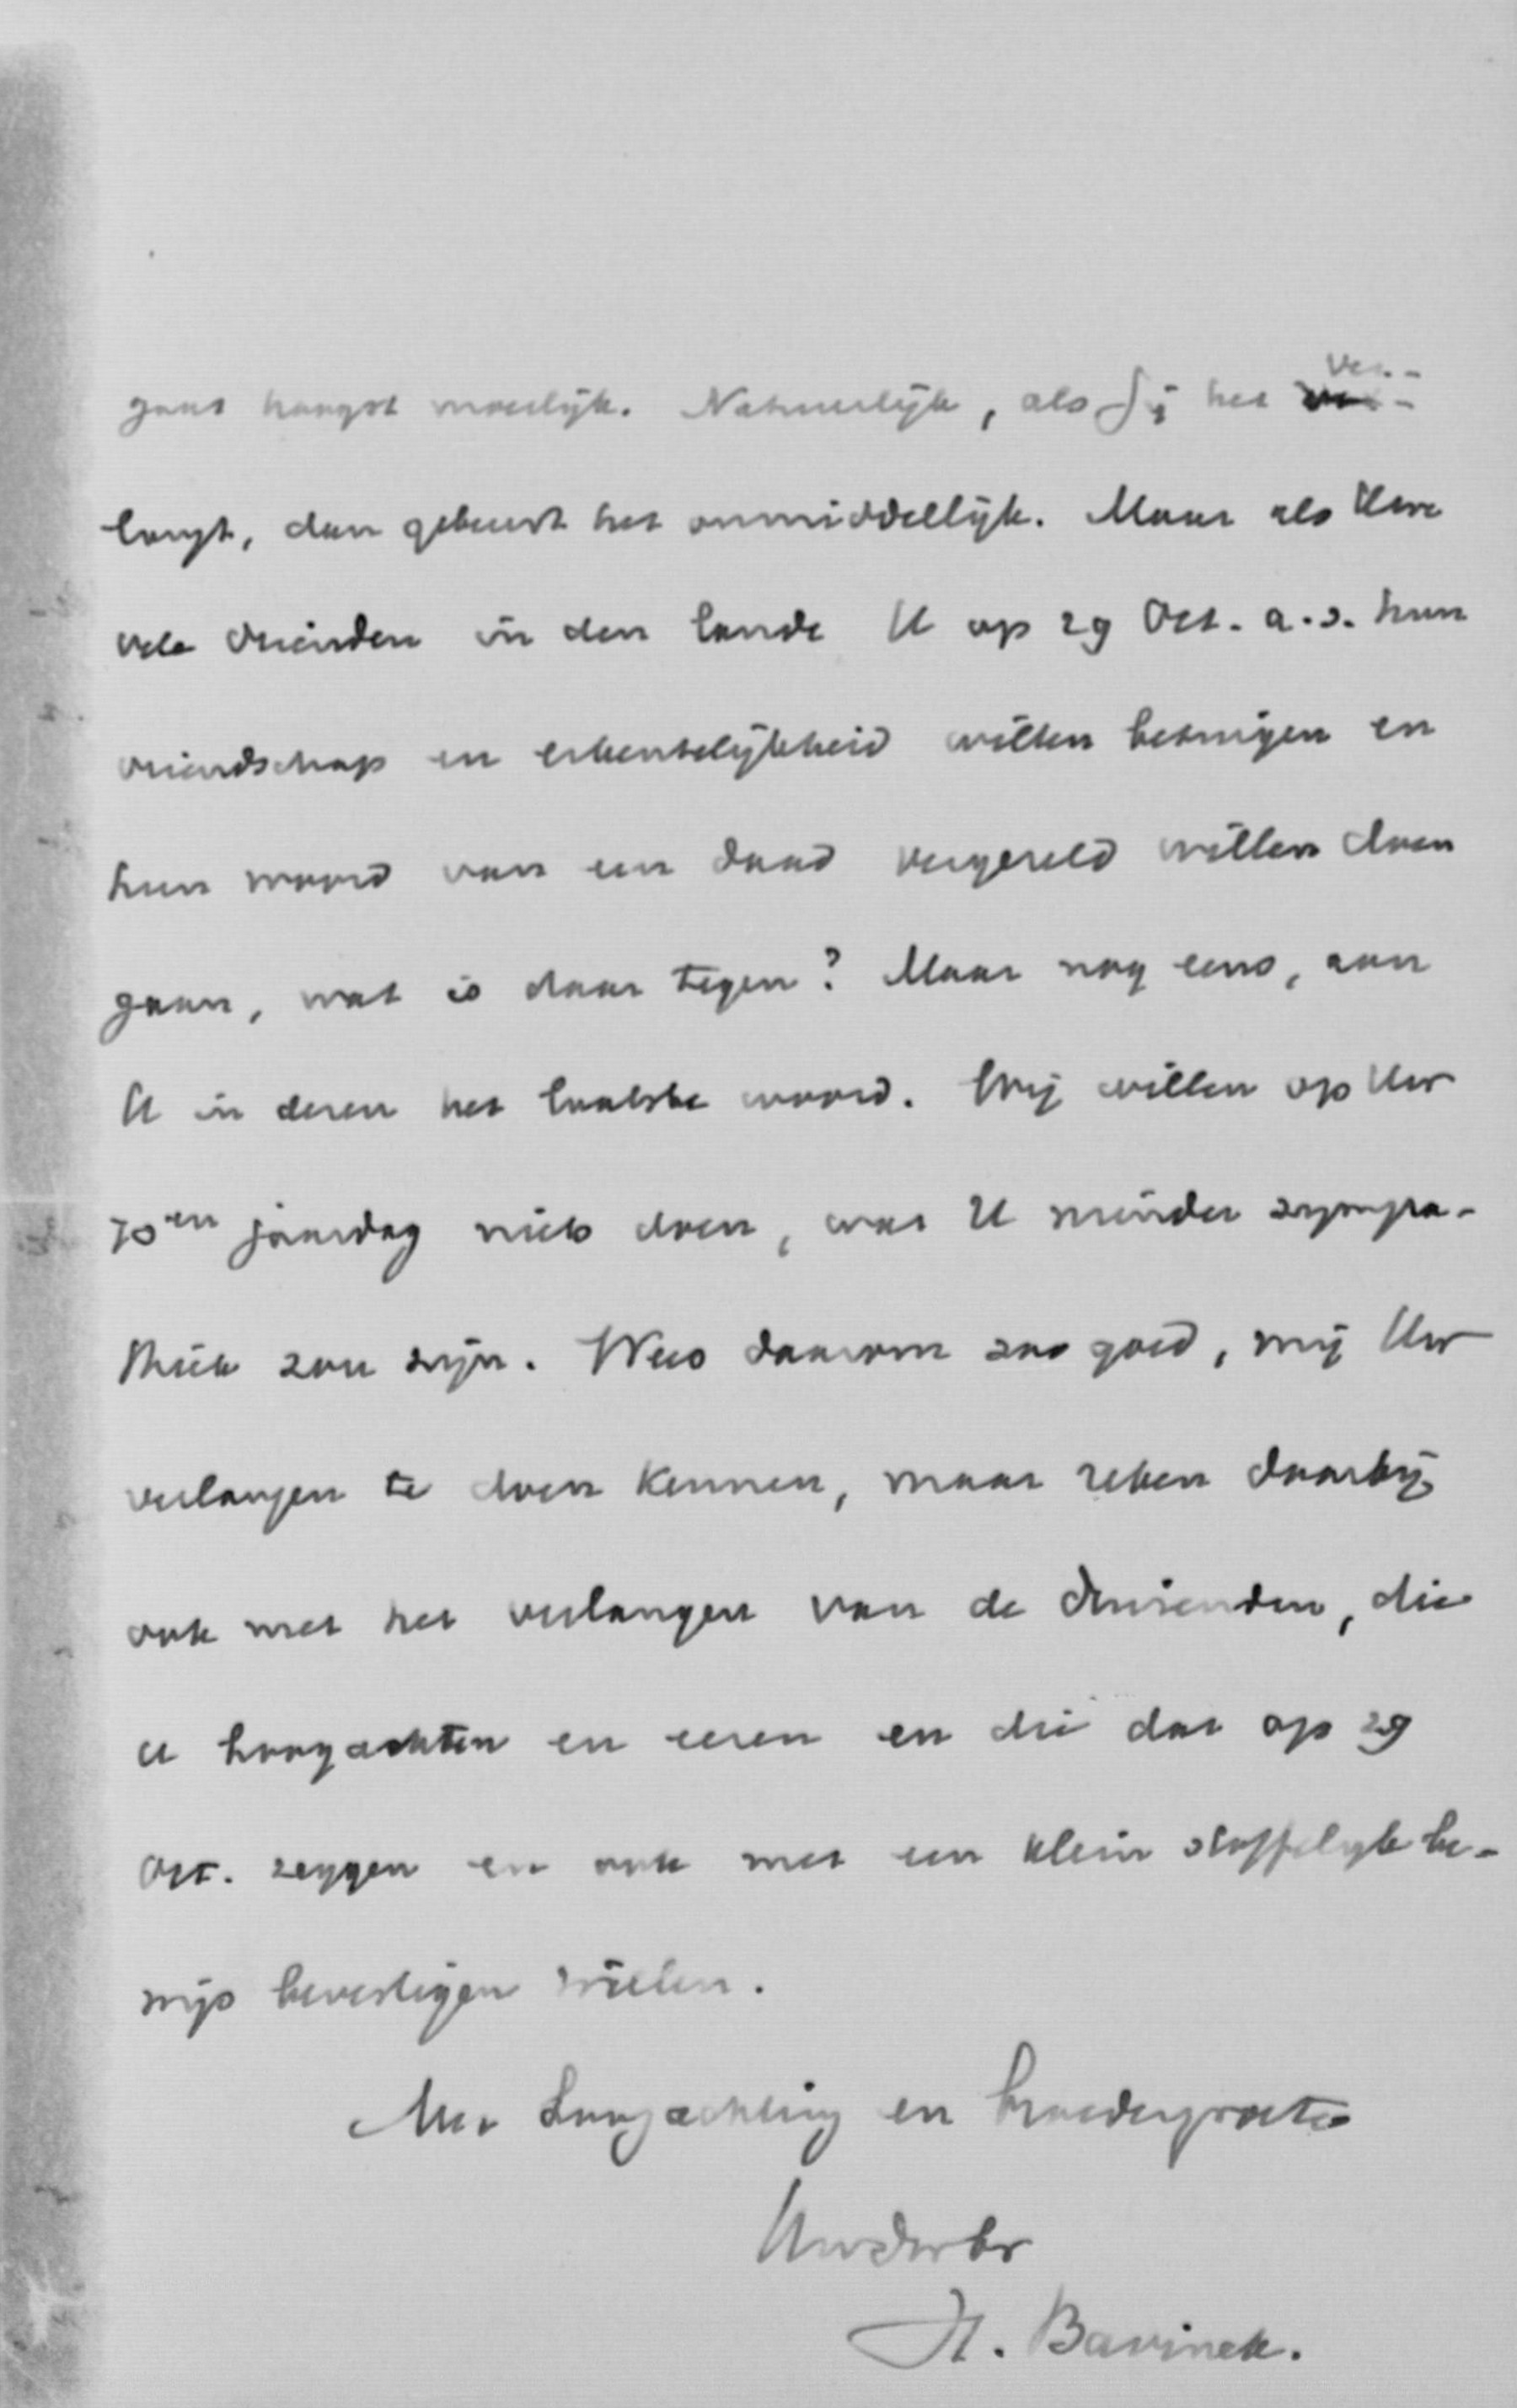 gaat hoogst moeilijk. Natuurlijk, als Gij het ver-
langt, dan gebeurt het onmiddellijk. Maar als Uwe
vele vrienden in den lande U op 29 Oct. a.s. hun
vriendschap en erkentelijkheid willen betuigen en
hun woord van een daad vergezeld willen doen
gaan, wat is daar tegen? Maar nog eens, aan
U in dezen het laatste woord. Wij willen op Uw
70en jaardag niets doen, wat U minder sympa-
thiek zou zijn. Wees daarom zoo goed, mij Uw
verlangen te doen kennen, maar reken daarbij
ook met het verlangen van de duizenden, die
U hoogachten en eeren en die dat op 29
Oct. zeggen en ook met een klein stoffelijk be-
wijs bevestigen willen.
Met hoogachting en broedergroete
Uwdwbr
H. Bavinck.